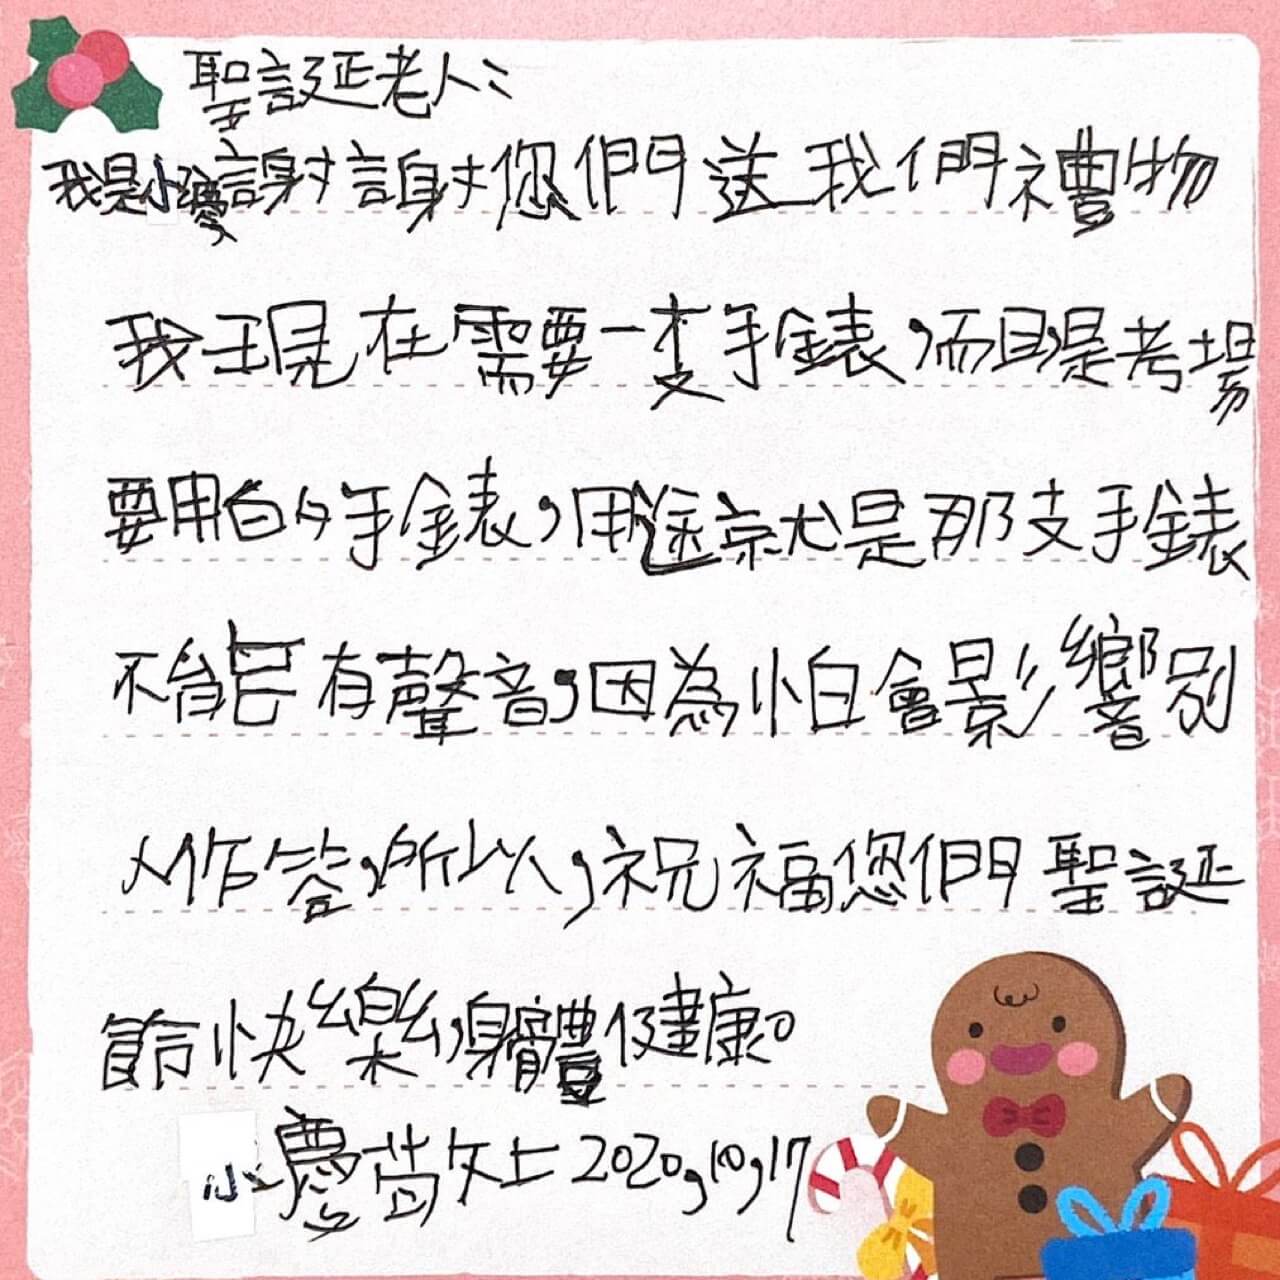 聖誕老人:
我是小慶謝謝您們送我們禮物
我現在需要一支手錶,而且是考場
要用的手錶,用途就是那支手錶
不能有聲音,因為怕會影響別
人作答,所以,祝福您們聖誕
節快樂,身體健康。
小慶 敬上2020,10,17